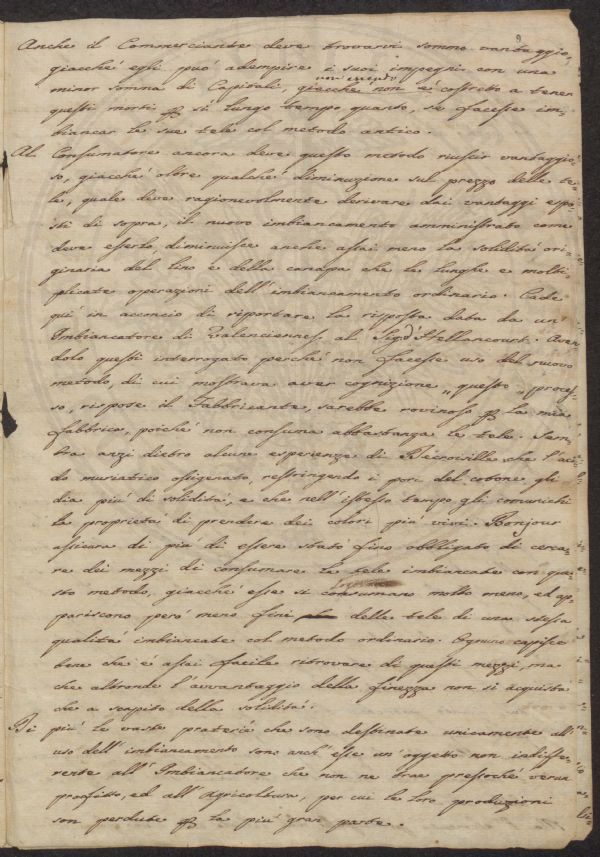 Anche il Commerciante deve trovarvi sommo vantaggio,
giacché egli può adempire i suoi impegni con una
non essendo
minor somma di Capitali, giacche non è costretto a tener
questi morti per sì lungo tempo quanto, se facesse im-
biancar le sue tele col metodo antico.
Al Consumatore ancora deve questo metodo riuscir vantaggio-
so, giacché oltre qualche diminuzione sul prezzo delle te-
le, quale deve ragionevolmente derivare dai vantaggi espo-
sti di sopra, il nuovo imbiancamento amministrato come
deve esserlo, diminuisce anche assai meno la solidità ori-
ginaria del lino e della canapa che le lunghe e molti-
plicate operazioni dell'imbiancamento ordinario. Cade
quì in acconcio di riportare la risposta data da un
Imbiancatore di Valenciennes al Sigr d'Hellancourt. Aven-
dolo questi interrogato perché non facesse uso del nuovo
metodo, di cui mostrava aver cognizione „questo proces-
so, rispose il Fabbricante, sarebbe rovinoso per la mia
fabbrica, poiché non consuma abbastanza le tele. Sem-
bra anzi dietro alcune esperienze di Decroiville che l'aci-
do muriatico ossigenato, restringendo i pori del cotone gli
dia più di solidità, e che nell'istesso tempo gli comunichi
la proprietà di prendere dei colori più vivi. Bonjour
assicura di più di essere stato fino obbligato di cerca-
re dei mezzi di consumare le tele imbiancate con que-
sto metodo, giacché esse si consumano molto meno, ed ap-
pariscono però meno fini delle tele di una stessa
qualità imbiancate col metodo ordinario. Ognuno capisce
bene che è assai facile ritrovare di questi mezzi, ma
che altronde l'avvantaggio della finezza non si acquista
che a scapito della solidità.
Di più le vaste praterie che sono destinate unicamente all'
uso dell'imbiancamento sono anch'esse un'oggetto non indiffe-
rente all'Imbiancatore che non ne trae pressoche verun
profitto, ed all'Agricoltura, per cui le loro produzioni
son perdute per la più gran parte.